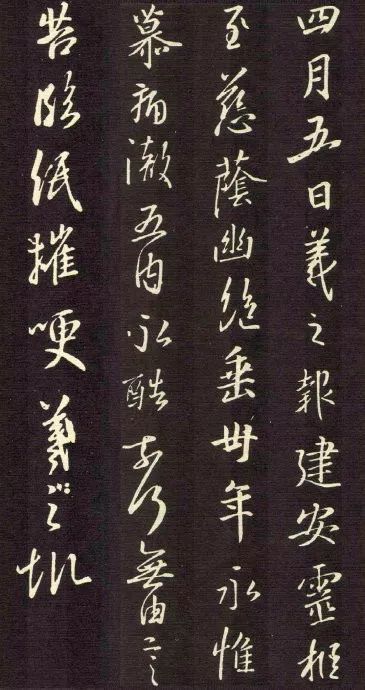 四月五日羲之報建安靈柩
至慈蔭幽絕垂卅年永惟
慕痛徹五內永酷奈何無由言
苦臨紙摧哽羲之報